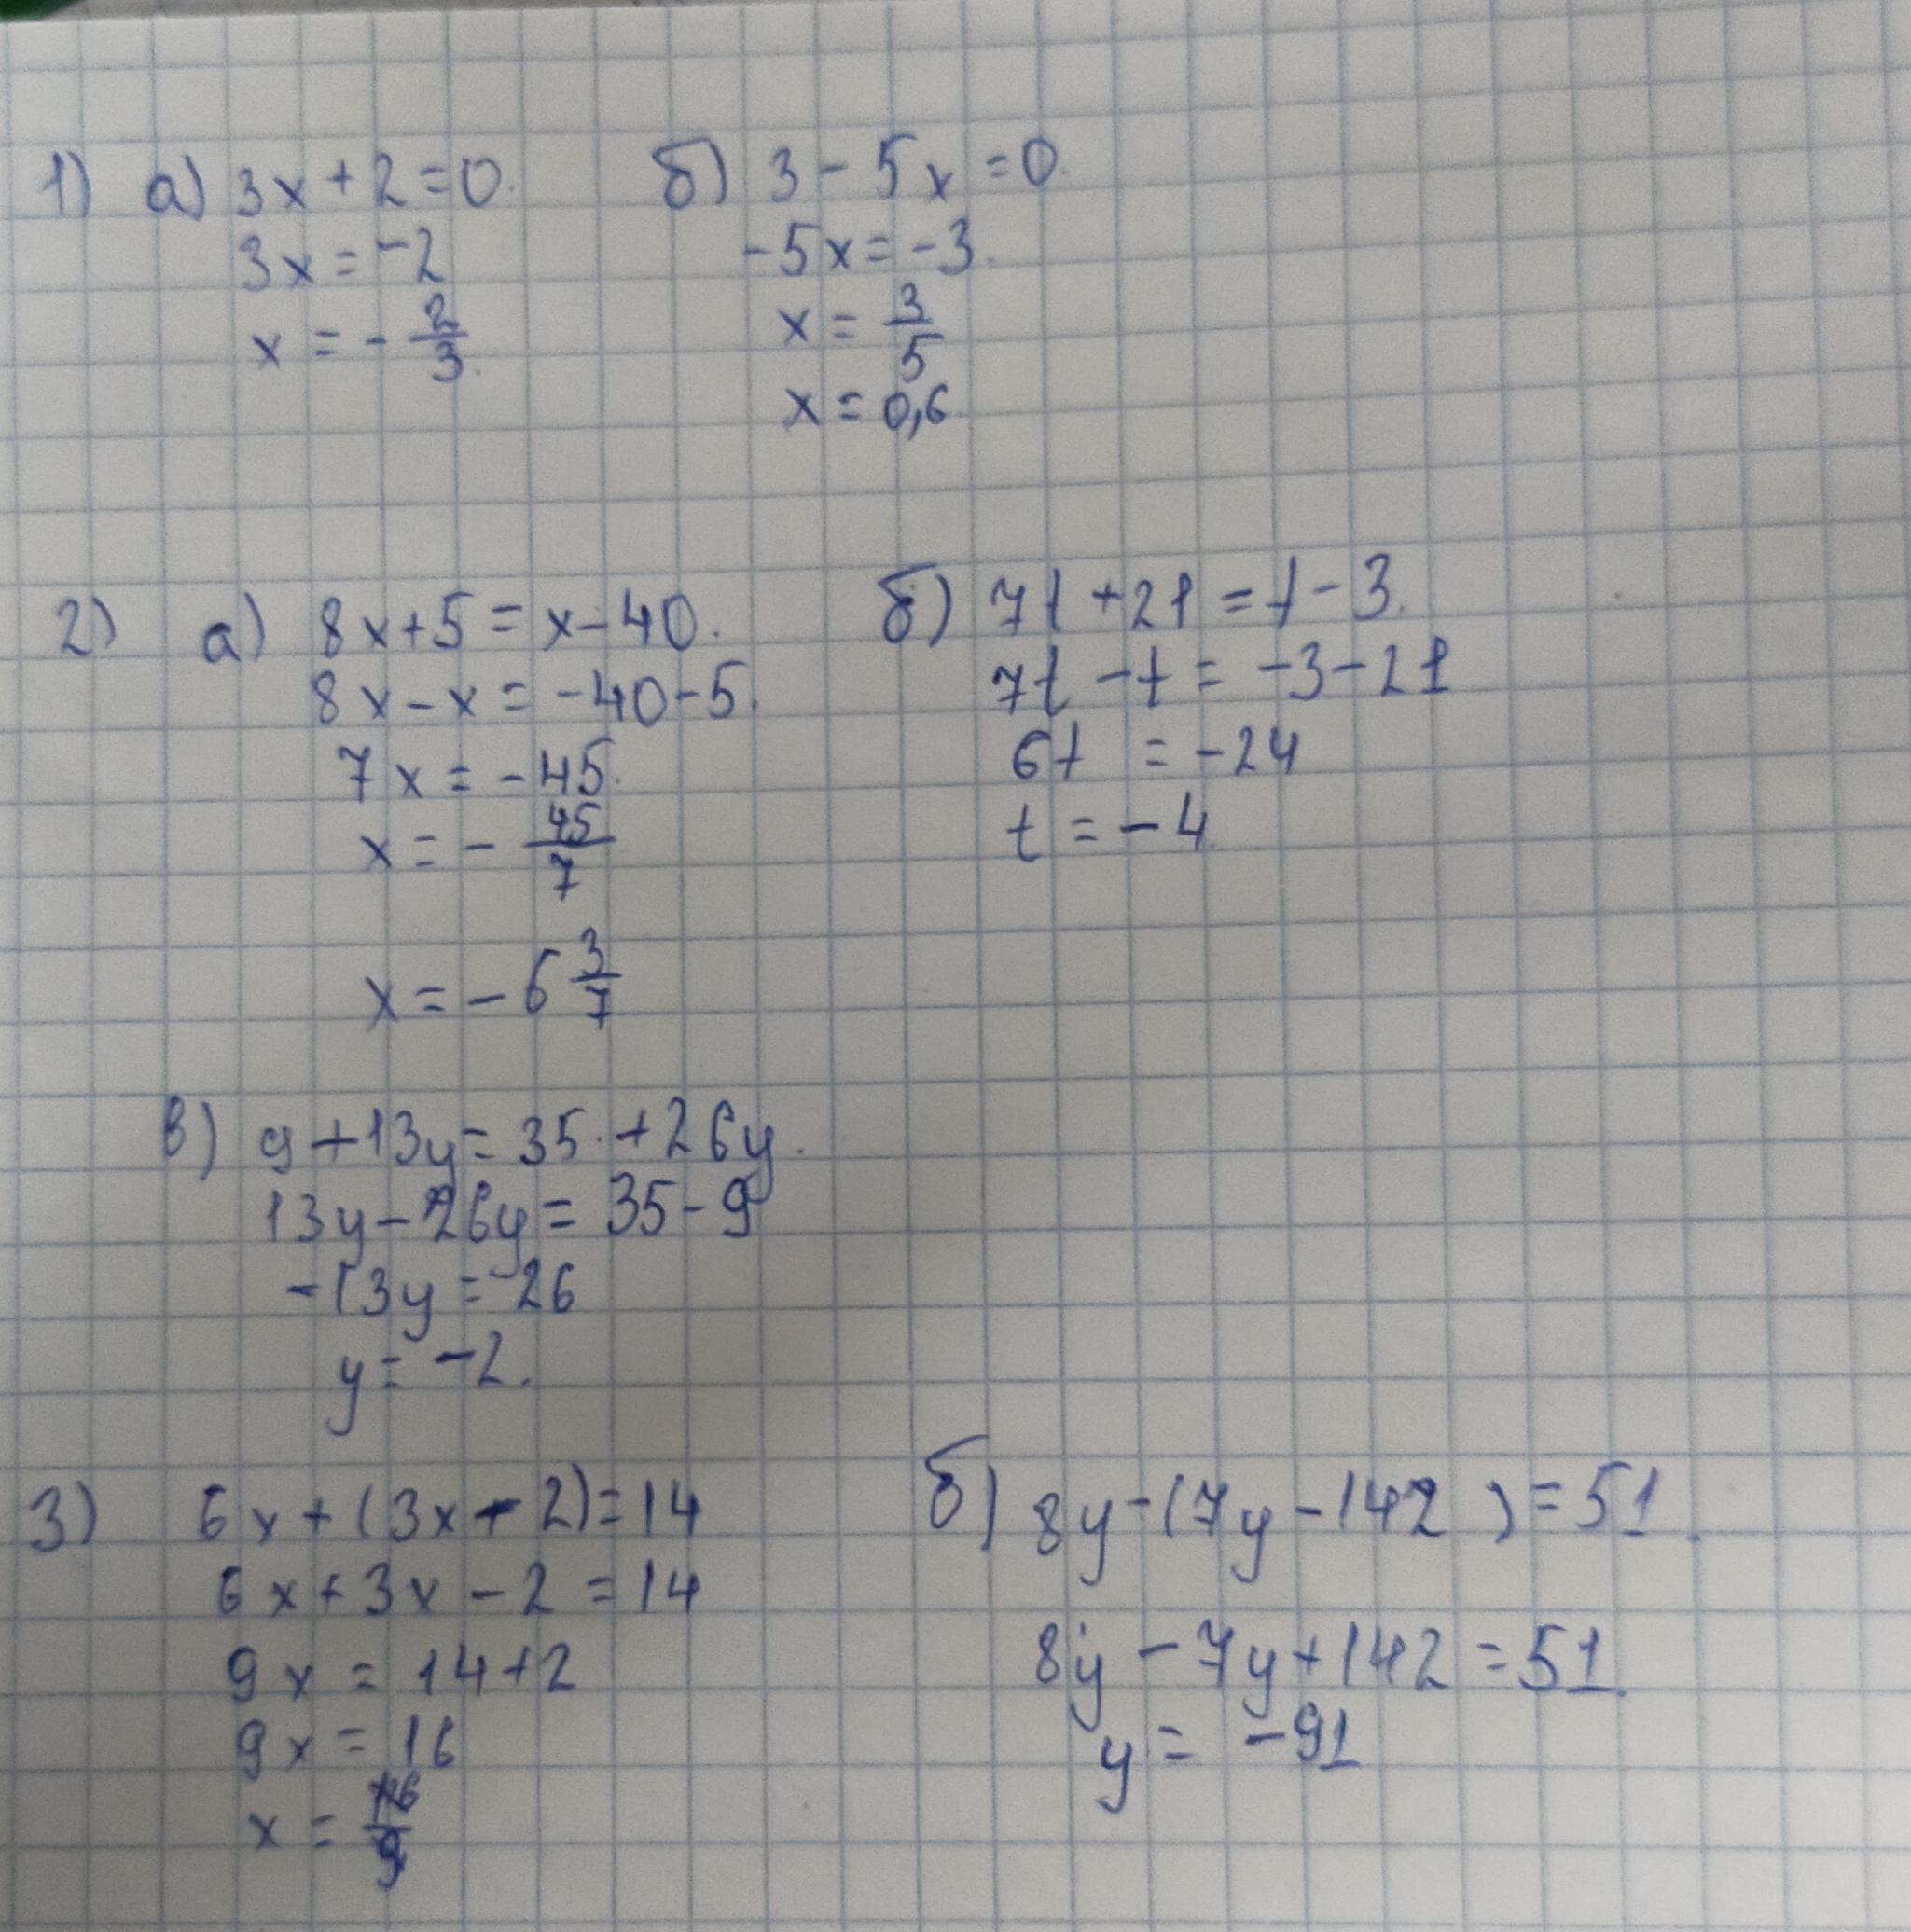 1) а) 3x + 2 = 0.
3x = -2
x = - 2/3.
б) 3 - 5x = 0.
-5x = -3.
x = 3/5
x = 0,6
2) а) 8x + 5 = x - 40.
8x - x = -40 - 5.
7x = -45.
x = - 45/7
x = - 6 3/7
б) 7t + 21 = t - 3.
7t - t = -3 - 21
6t = -24
t = -4
в) 9 + 13y = 35 + 26y.
13y - 26y = 35 - 9
-13y = 26
y = -2.
3) 6x + (3x - 2) = 14
6x + 3x - 2 = 14
9x = 14 + 2
9x = 16
x = 16/9
б) 8y - (7y - 142) = 51.
8y - 7y + 142 = 51.
y = -91